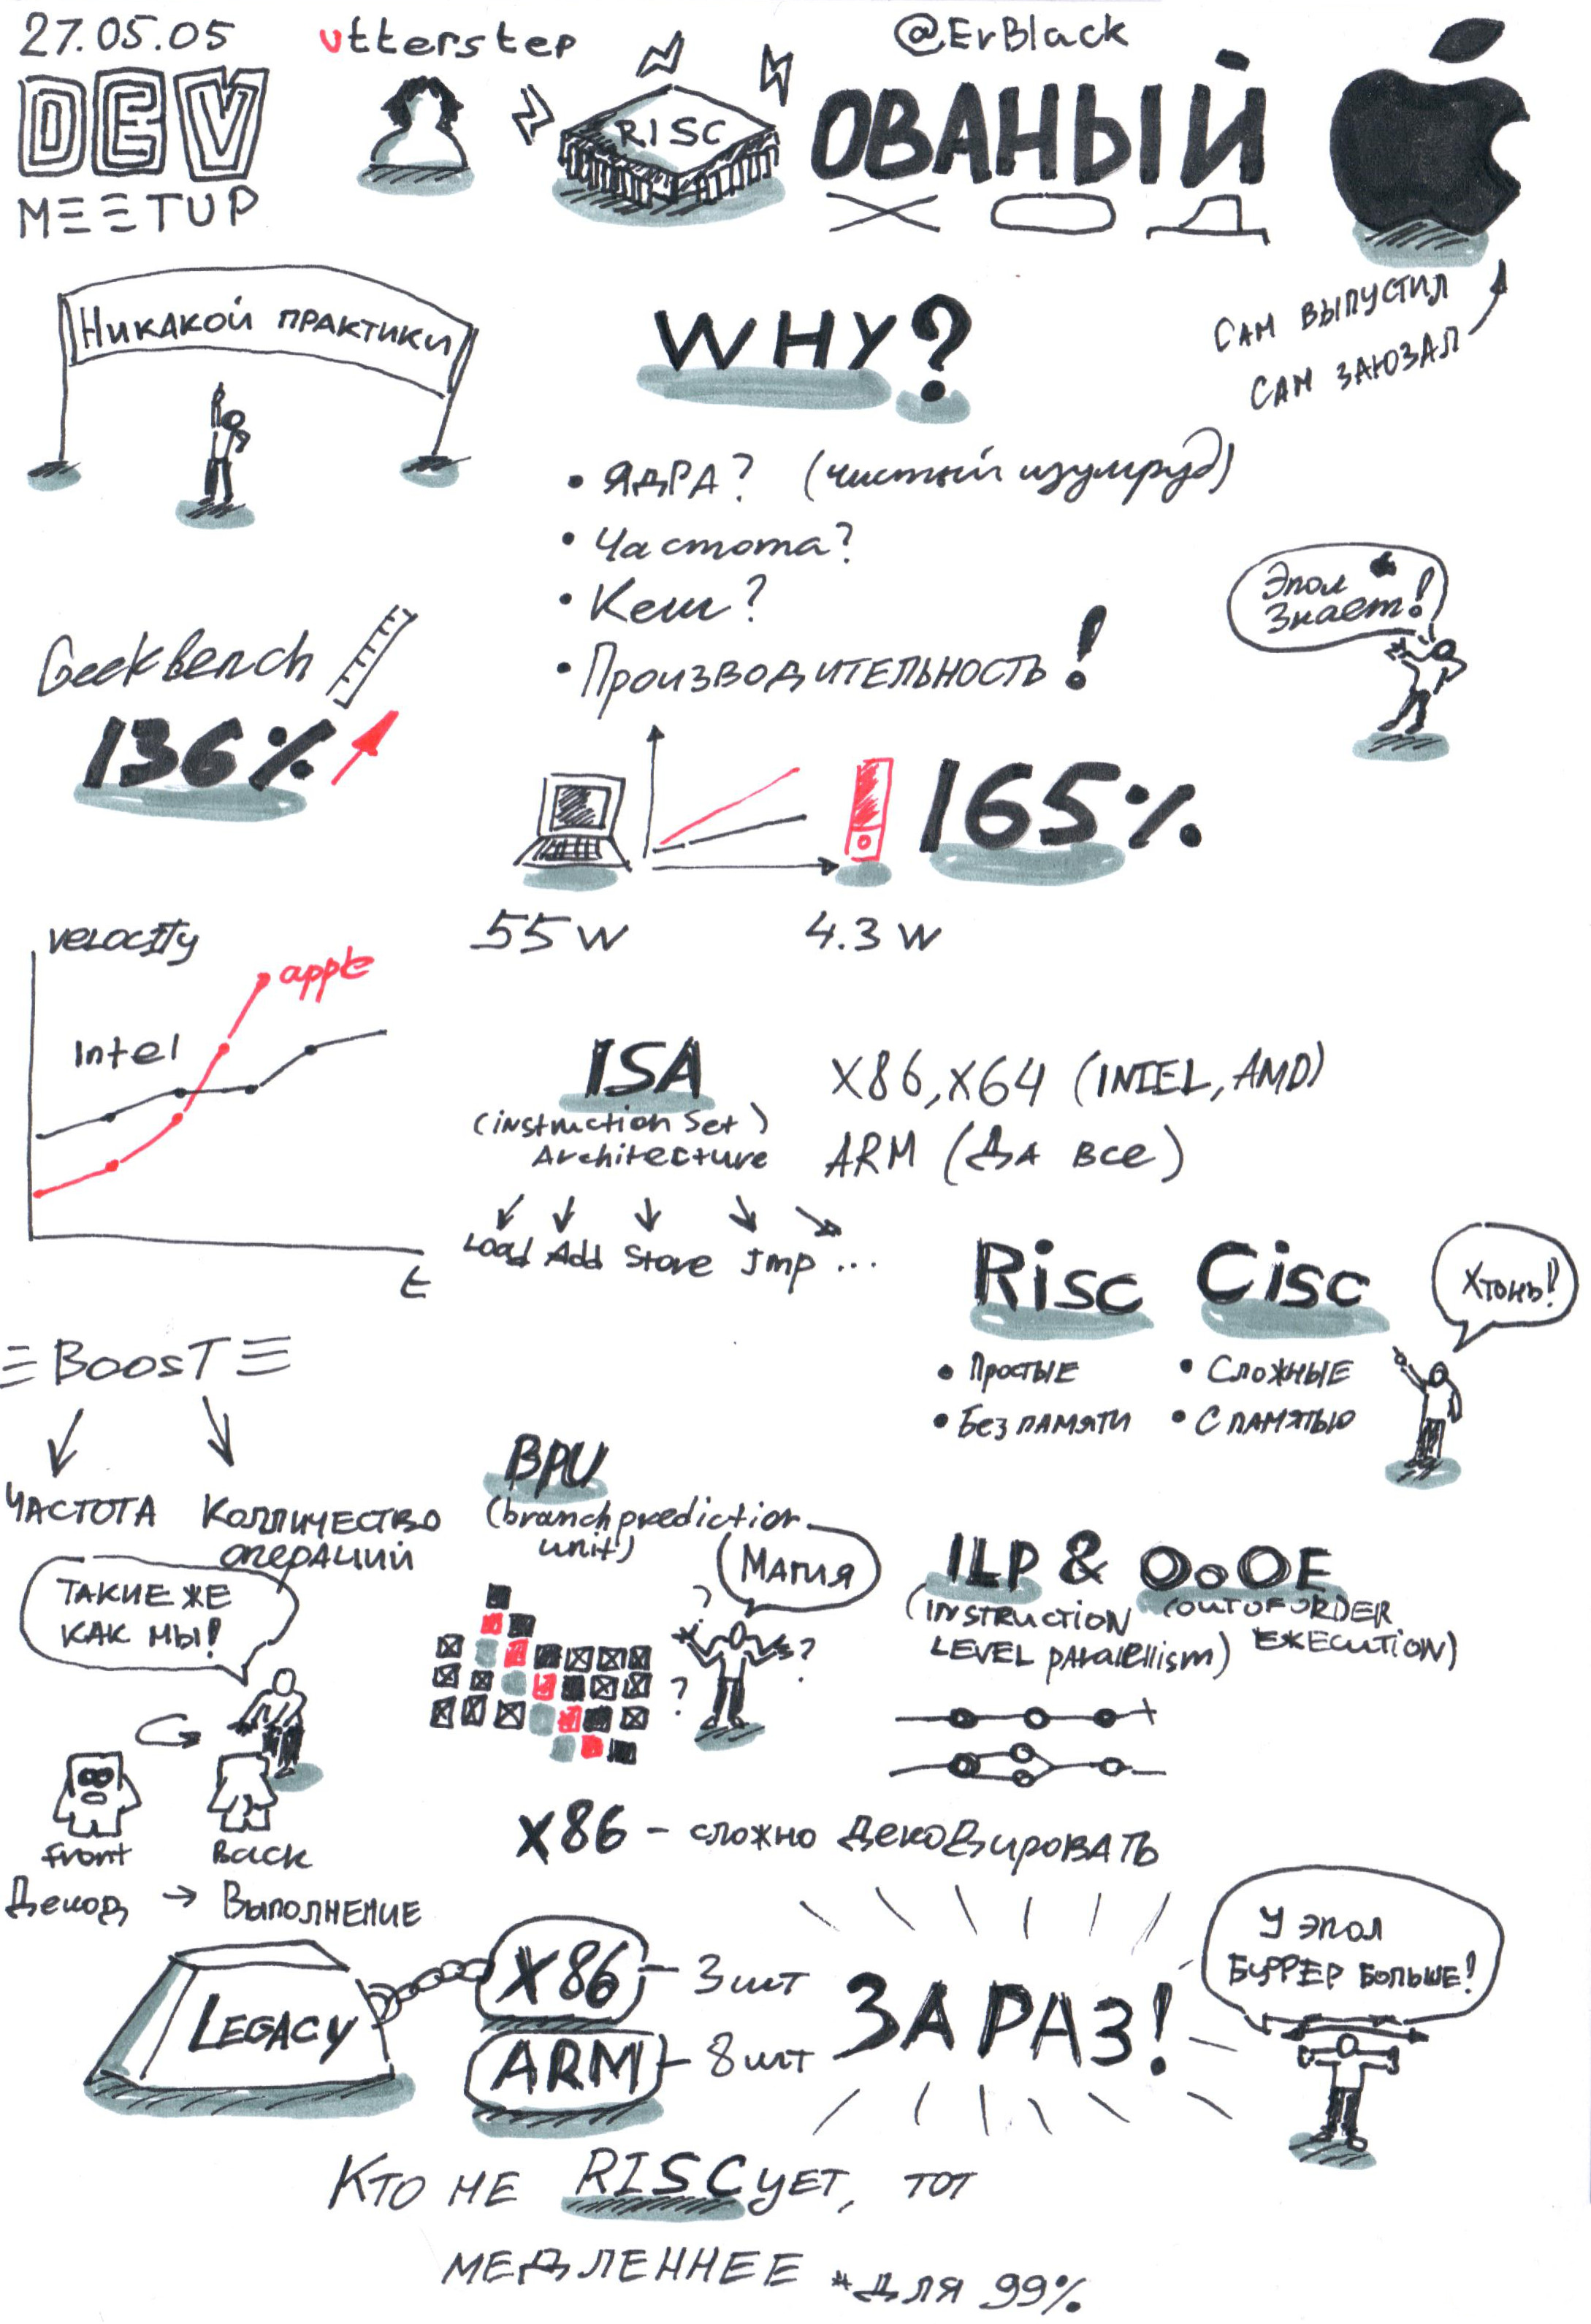 27.05.05
DEV
MEETUP
utterstep
RISC
ОВАНЫЙ
@ErBlack
САМ ВЫПУСТИЛ
САМ ЗАЮЗАЛ
НИКАКОЙ ПРАКТИКИ
WHY?
• ЯДРА? (чистый изумруд)
• Частота?
• Кеш?
• ПРОИЗВОДИТЕЛЬНОСТЬ!
Эпол
Знает!
Geekbench
136%
165%
55 W
4.3 W
VELOCITY
apple
Intel
t
ISA
(instruction Set)
Architecture
Load Add Store Jmp ...
X86, X64 (INTEL, AMD)
ARM (ДА ВСЕ)
Risc
• ПРОСТЫЕ
• БЕЗ ПАМЯТИ
Cisc
• СЛОЖНЫЕ
• С ПАМЯТЬЮ
ХТОНЬ!
BOOST
ЧАСТОТА
КОЛЛИЧЕСТВО
ОПЕРАЦИЙ
ТАКИЕ ЖЕ
КАК МЫ!
front
Back
Декод → Выполнение
BPU
(branch prediction
unit)
МАГИЯ
?
?
?
ILP & OoOE
(INSTRUCTION
LEVEL PARALELLISM)
(OUT OF ORDER
EXECUTION)
X86 - СЛОЖНО ДЕКОДИРОВАТЬ
LEGACY
X86 - 3 ШТ
ARM - 8 ШТ
ЗА РАЗ!
У ЭПОЛ
БУФФЕР БОЛЬШЕ!
КТО НЕ RISCУЕТ, ТОТ
МЕДЛЕННЕЕ *ДЛЯ 99%